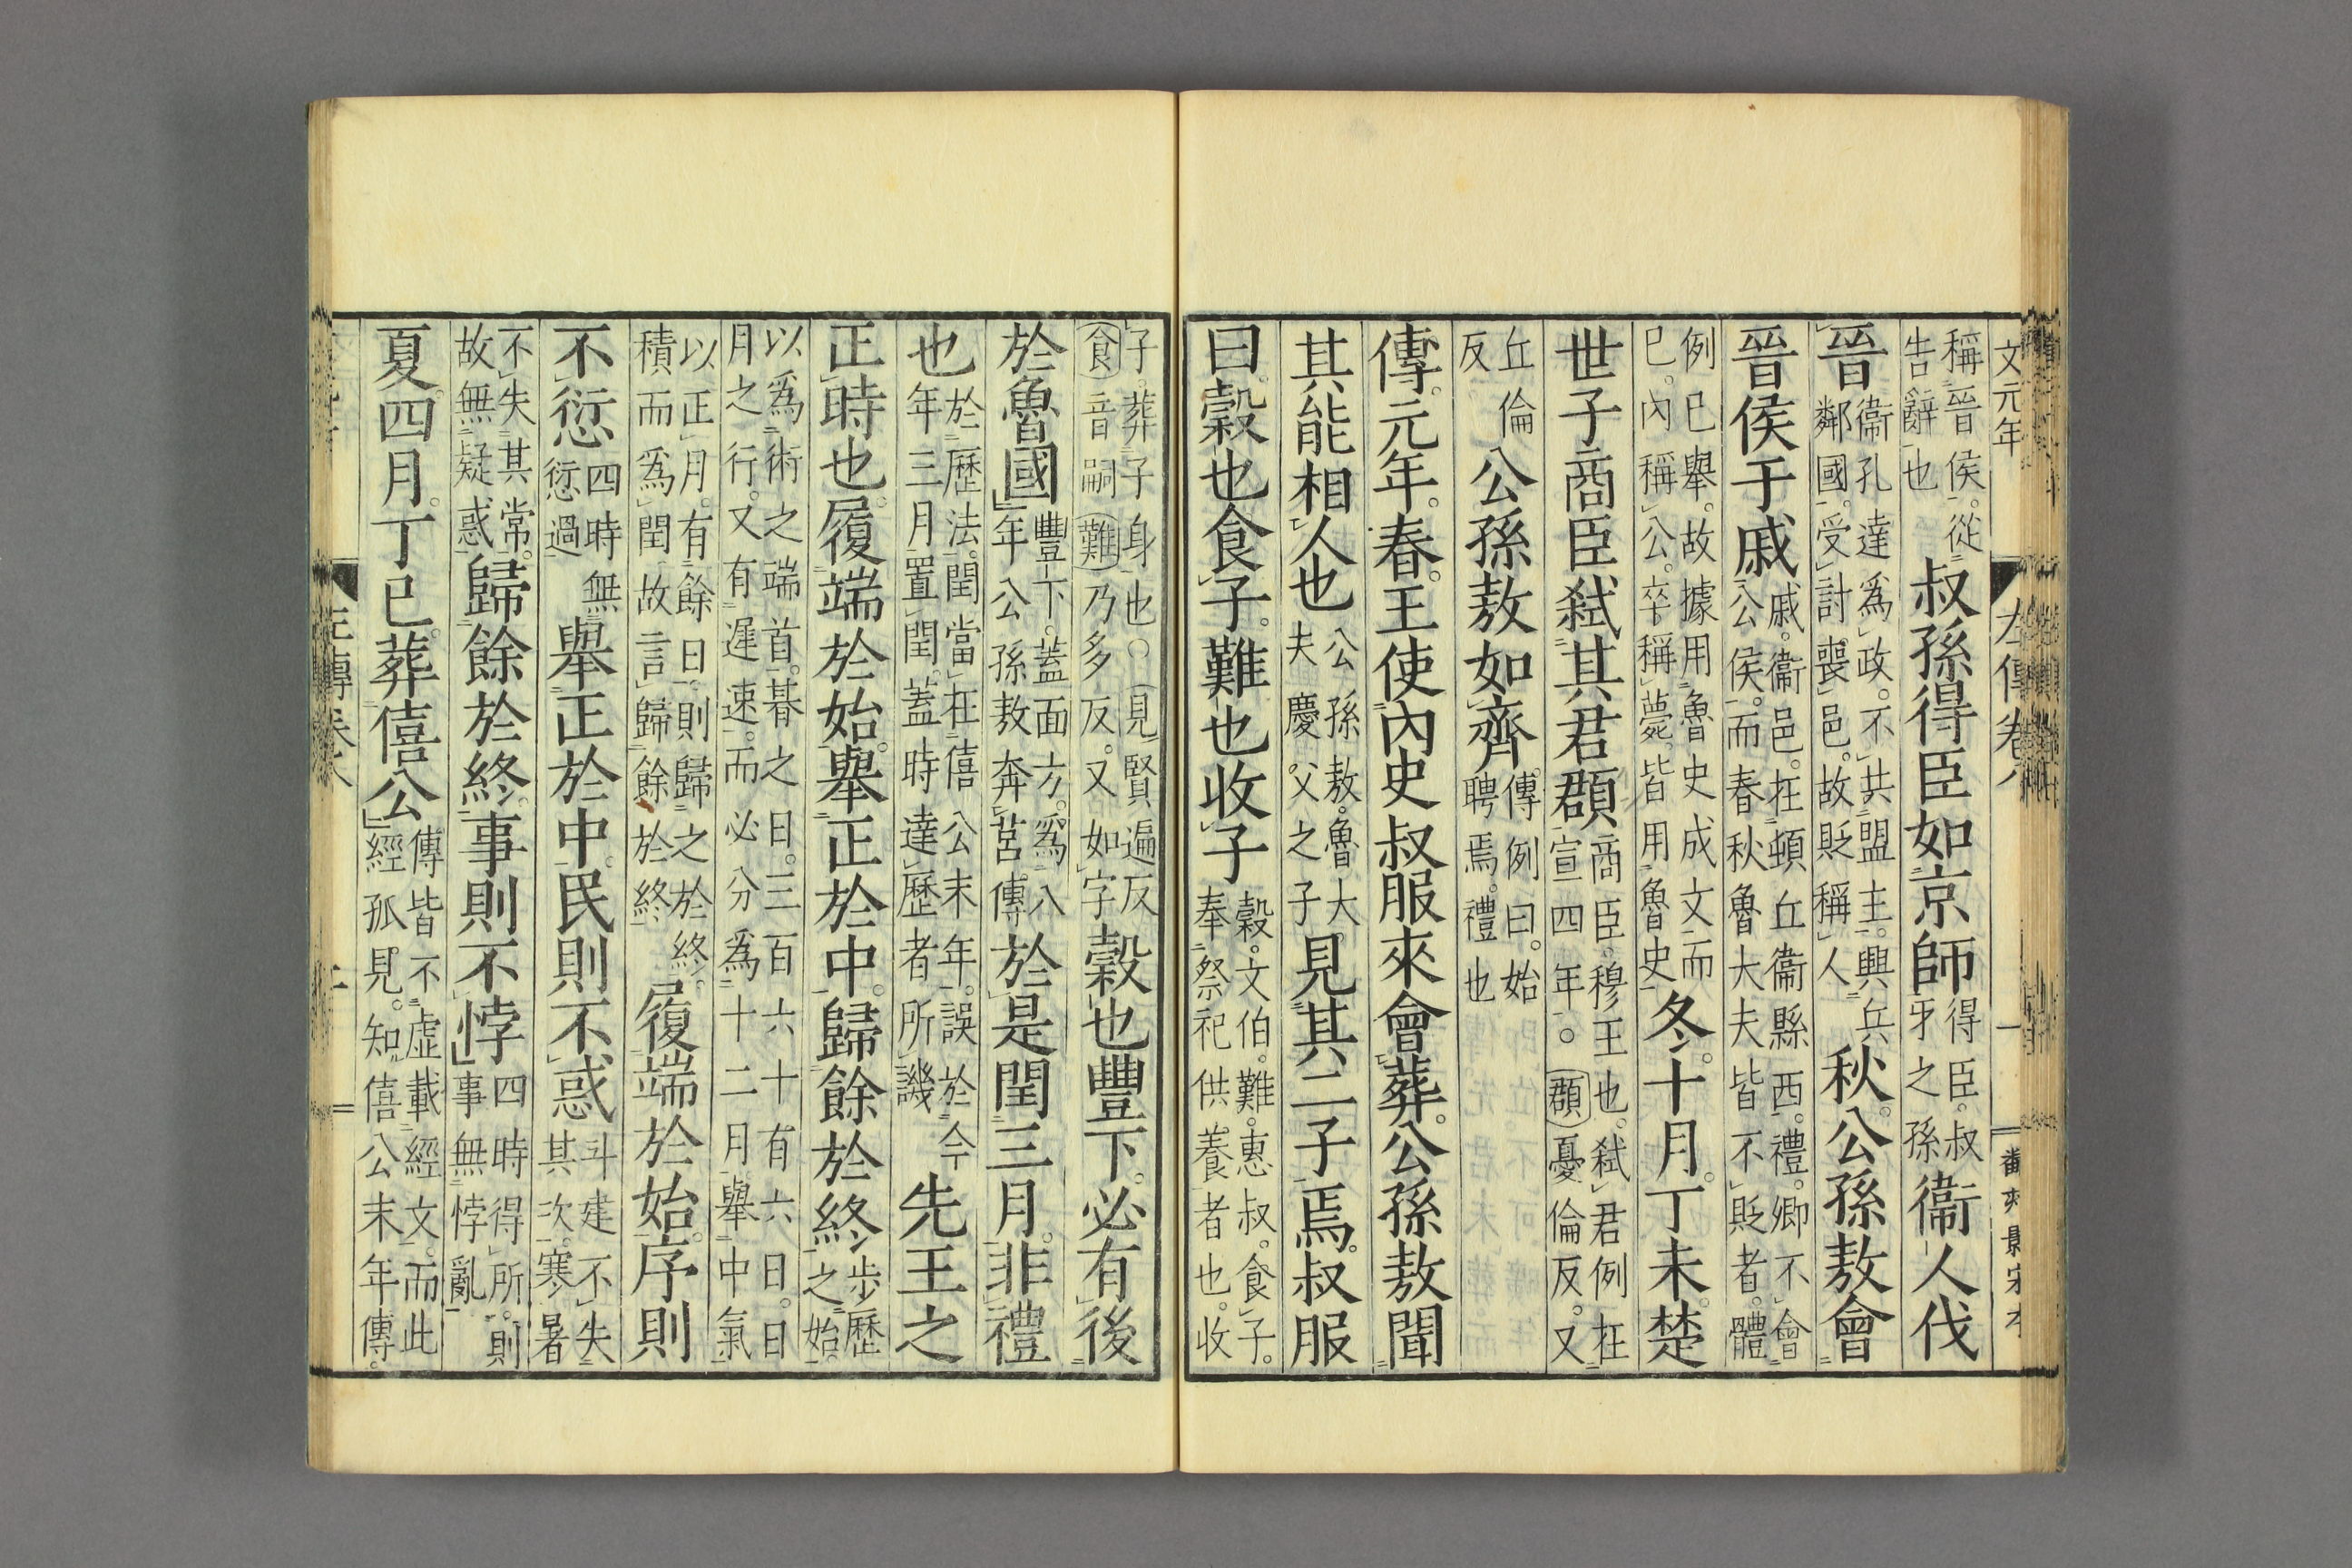 文元年 左傳卷八 一
稱晉侯。從告辭也叔孫得臣如京師得臣。叔牙之孫衞人伐
晉衞孔達爲政。不共盟主。興兵鄰國。受討喪邑。故貶稱人秋。公孫敖會
晉侯于戚戚。衞邑。在頓丘衞縣西。禮。卿不會公侯。而春秋魯大夫皆不貶者。體
例已舉。故據用魯史成文而已。內稱公。卒稱薨。皆用魯史冬。十月。丁未。楚
世子商臣弑其君頵商臣。穆王也。弑君例在宣四年。○頵憂倫反。又
丘倫反公孫敖如齊傳例曰。始聘焉。禮也
傳。元年。春。王使內史叔服來會葬。公孫敖聞
其能相人也公孫敖。魯大夫慶父之子見其二子焉。叔服
曰。穀也食子。難也收子穀。文伯。難。惠叔。食子。奉祭祀供養者也。收
子。葬子身也。○見賢遍反食音嗣難乃多反。又如字穀也豐下。必有後
於魯國豐下。蓋面方。爲八年公孫敖奔莒傳於是閏三月。非禮
也於歷法。閏當在僖公末年。誤於今年三月置閏。蓋時達歷者所譏先王之
正時也。履端於始。舉正於中。歸餘於終步歷之始。
以爲術之端首。朞之日。三百六十有六日。日月之行。又有遲速。而必分爲十二月。舉中氣
以正月。有餘日。則歸之於終。積而爲閏。故言歸餘於終履端於始。序則
不愆四時無愆過舉正於中。民則不惑斗建不失其次。寒暑
不失其常。故無疑惑歸餘於終。事則不悖四時得所。則事無悖亂
夏。四月。丁巳。葬僖公傳皆不虛載經文。而此經孤見。知僖公末年傳。
左傳卷八